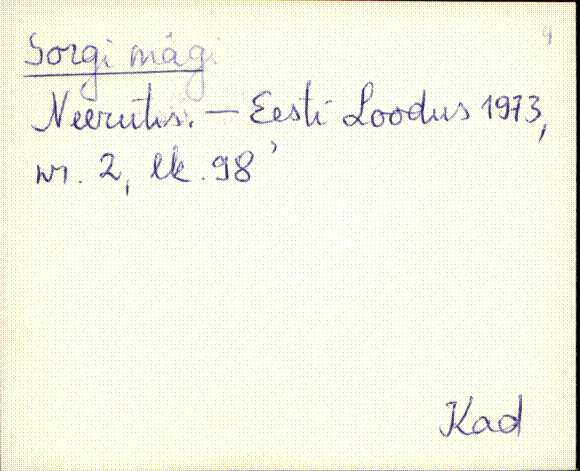 Sorgi mägi
Neerutis. — Eesti Loodus 1973,
nr. 2, lk. 98
Kad